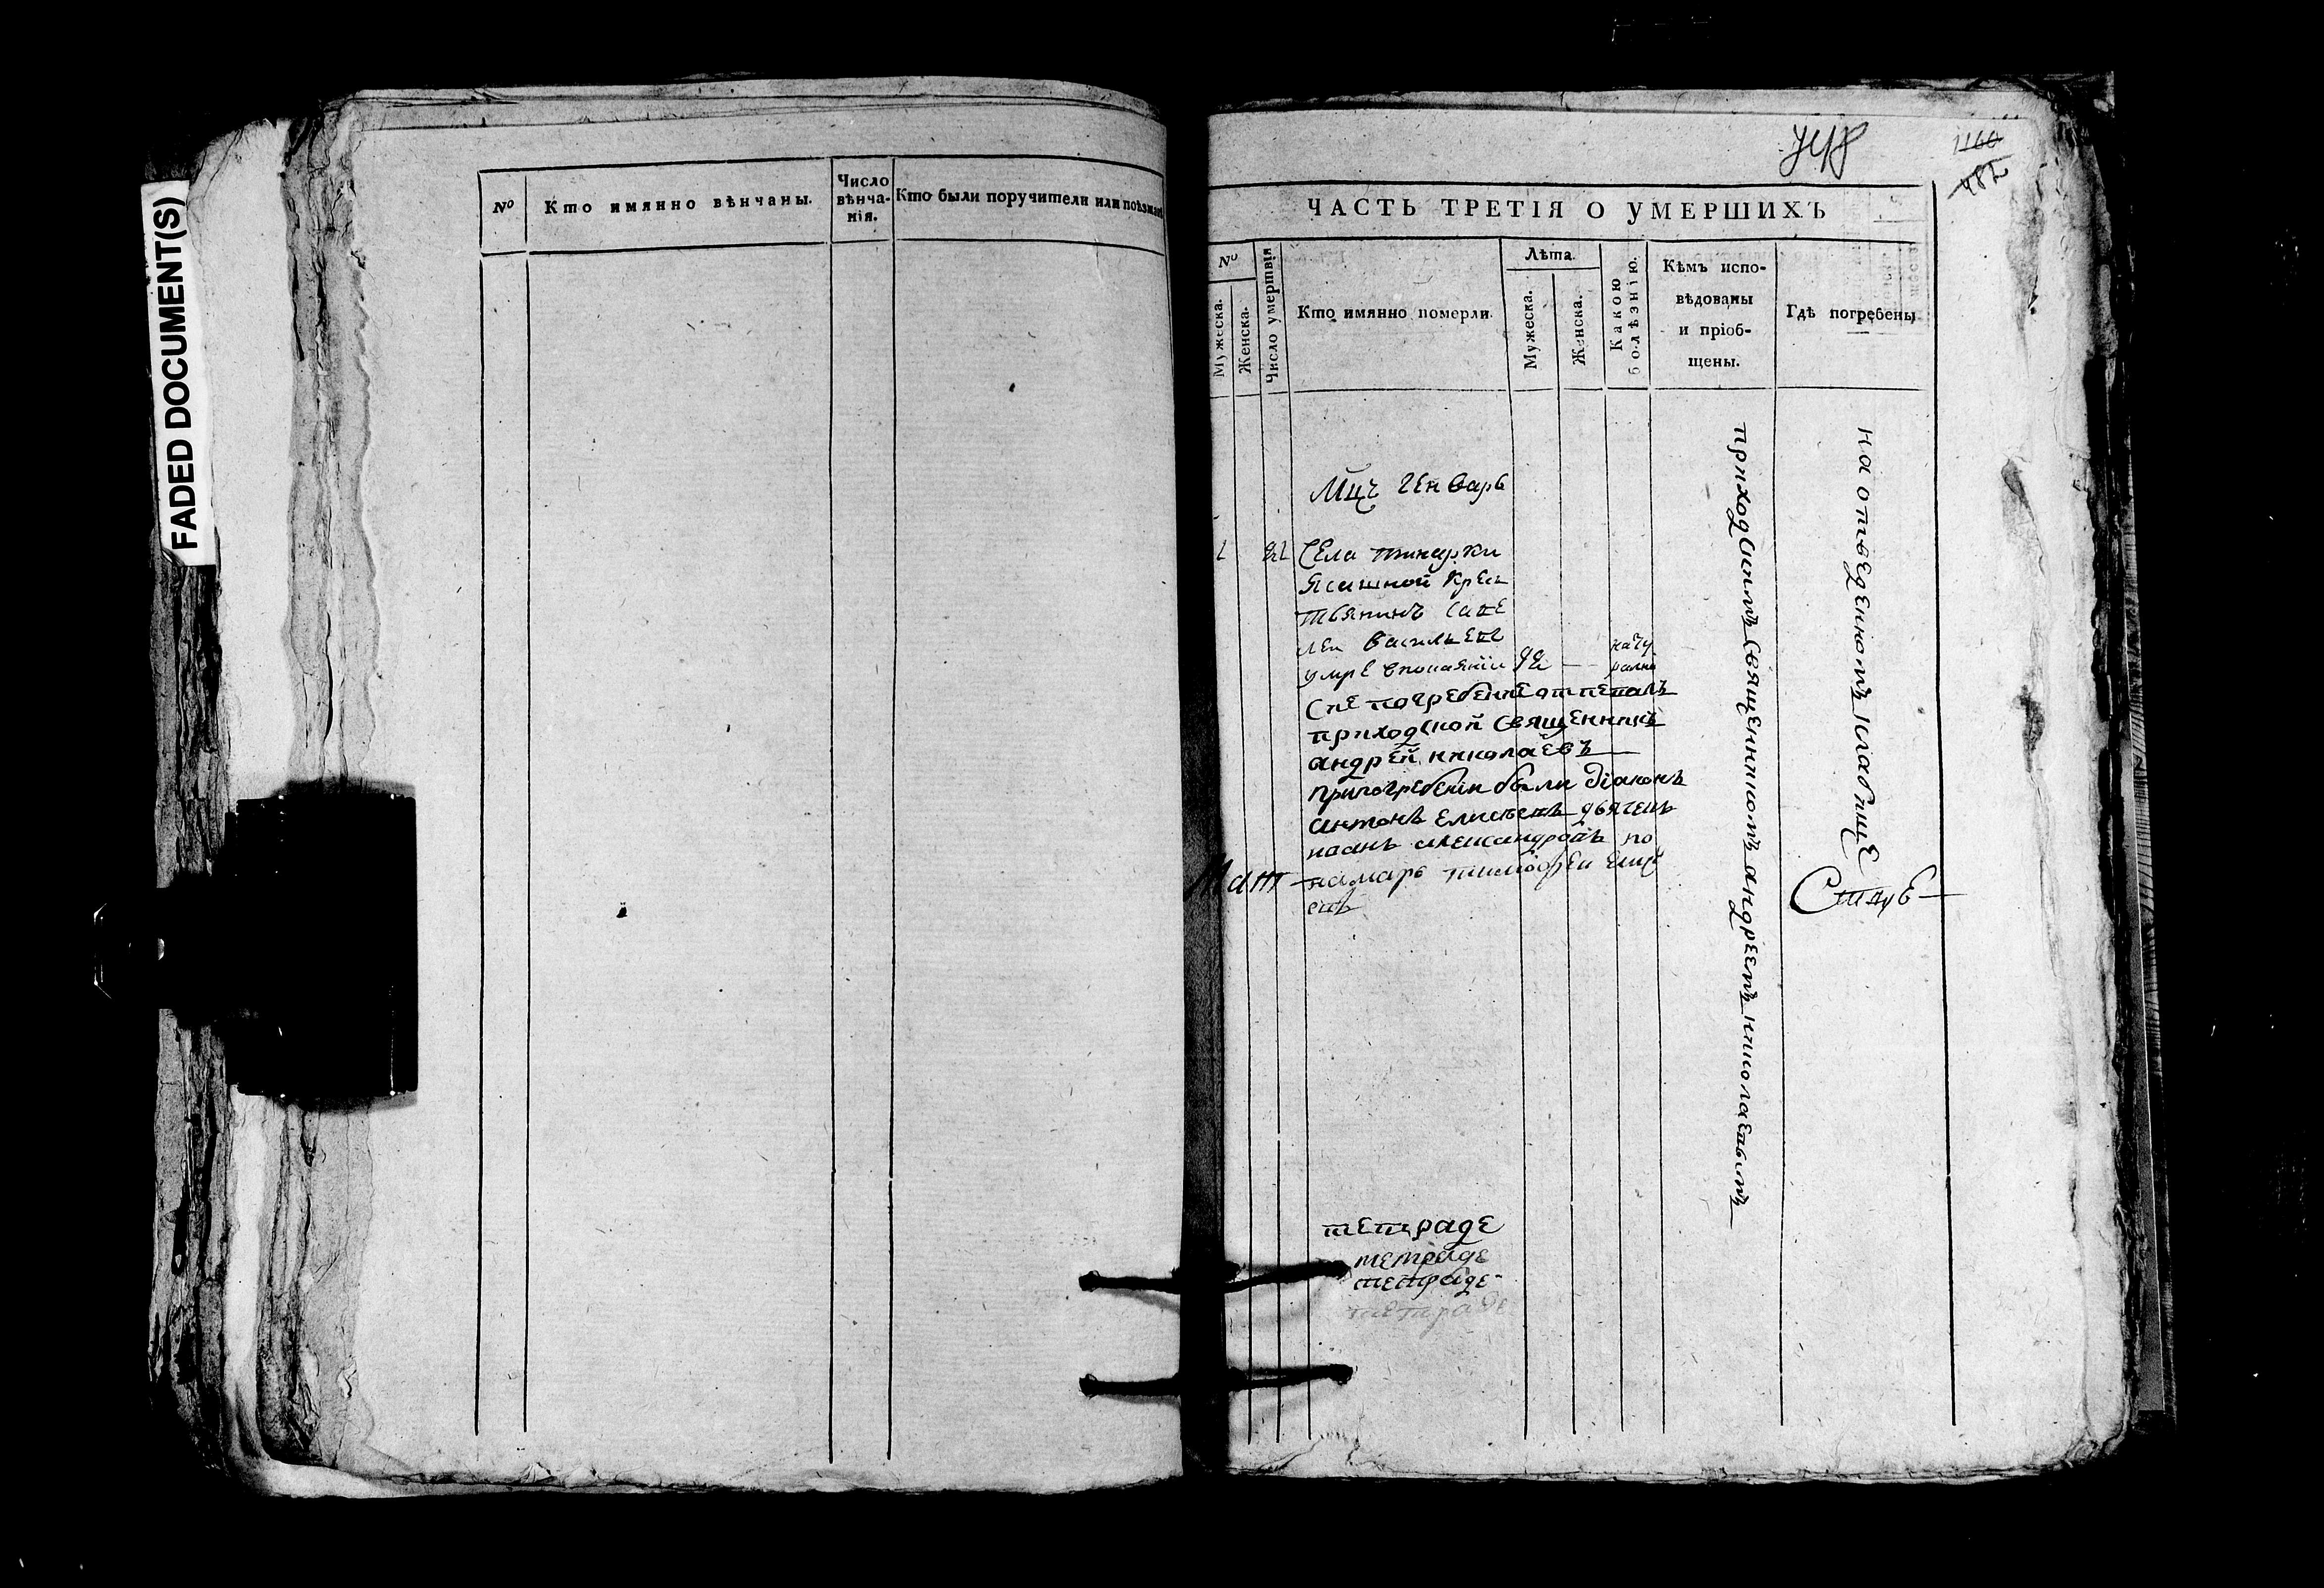 FADED DOCUMENT(S)
№
Кто имянно вѣнчаны.
Число
вѣнча-
нія.
Кто были поручители или
1160
482
ЧАСТЬ ТРЕТІЯ О УМЕРШИХЪ
№
Мужеска.
Женска.
Число умертвія
Кто имянно померли.
Лѣта.
Мужеска.
Женска.
Какою
болѣзнію.
Кѣмъ испо-
вѣдованы
и пріоб-
щены.
Гдѣ погребены
Мцъ Генварь
Села
Ясашной крес
тьянинъ саве
леи Васильевъ
умре спокаяніи
нату
рално
Сие погребение отпевалъ
приходской священникъ
андрей николаевъ
припогребеніи были діаконъ
антонъ Елисѣевъ дьячекъ
иоанъ александровъ по
намарь тимофеи
евъ
приходскимъ священникомъ андреемъ николаевымъ
на отведенномъ кладпище
тетраде
тетраде
тетраде
тетраде